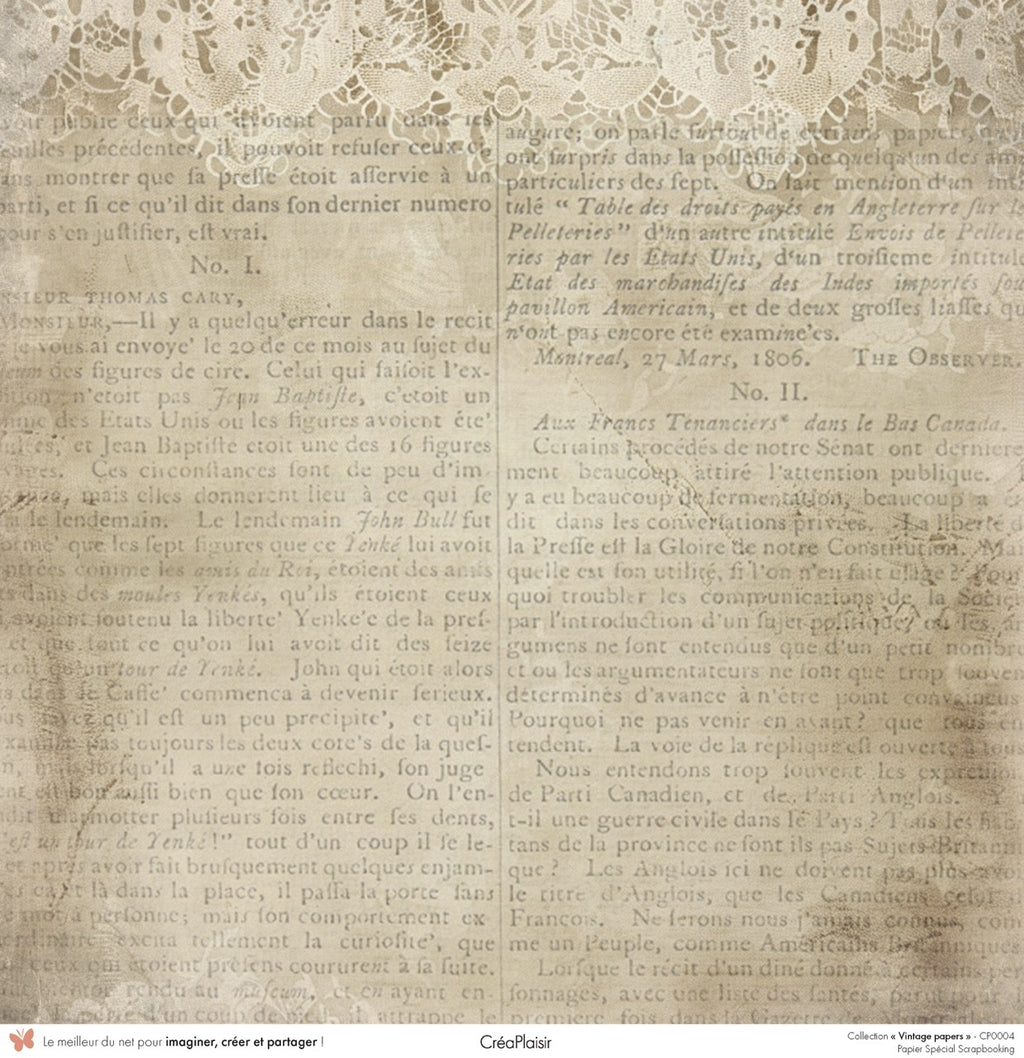 publié ceux qui avoient parru dans les
précédentes, il pouvoit refuser ceux-ci,
montrer que ſa preſſe étoit aſſervie à un
parti, et ſi ce qu'il dit dans ſon dernier numero
pour s'en juſtifier, eſt vrai.
No. I.
THOMAS CARY,
MONSIEUR,—Il y a quelqu'erreur dans le recit
vous ai envoye' le 20 de ce mois au ſujet du
des figures de cire. Celui qui faiſoit l'ex-
n'etoit pas Jean Baptiſte, c'etoit un
des Etats Unis ou les figures avoient été'
et Jean Baptiſte etoit une des 16 figures
Ces circonſtances ſont de peu d'im-
mais elles donnerent lieu à ce qui ſe
le lendemain. Le lendemain John Bull fut
que les ſept figures que ce Yenké lui avoit
comme les amis du Roi, étoient des amis
dans des moules Yenkés, qu'ils étoient ceux
avoient ſoutenu la liberte' Yenke'e de la preſ-
et que tout ce qu'on lui avoit dit des ſeize
un tour de Yenké. John qui étoit alors
dans le Caffe' commenca à devenir ſerieux.
qu'il eſt un peu precipite', et qu'il
pas toujours les deux cote's de la queſ-
lorſqu'il a une fois reflechi, ſon juge
bon auſſi bien que ſon cœur. On l'en-
marmotter pluſieurs fois entre ſes dents,
eſt un tour de Yenké!" tout d'un coup il ſe le-
et après avoir fait bruſquement quelques enjam-
là dans la place, il paſſa la porte ſans
mot à perſonne; mais ſon comportement ex-
excita tellement la curioſite', que
ceux qui étoient préſens coururent à ſa ſuite.
rendu au muſeum, et en ayant en-
d'un coup de pied, il attrappe le
augure; on parle ſurtout de certains papiers,
ont ſurpris dans la poſſeſſion de quelqu'un des
particuliers des ſept. On fait mention d'un
tulé "Table des droits payés en Angleterre ſur
Pelleteries" d'un autre intitulé Envois de
ries par les Etats Unis, d'un troiſieme intitulé
Etat des marchandiſes des Indes importés
pavillon Americain, et de deux groſſes liaſſes
n'ont pas encore été examine'es.
Montreal, 27 Mars, 1806. THE OBSERVER.
No. II.
Aux Francs Ténanciers* dans le Bas Canada.
Certains procédés de notre Sénat ont derniere
ment beaucoup attiré l'attention publique.
y a eu beaucoup de fermentation, beaucoup
dit dans les converſations privées. La liberté
la Preſſe eſt la Gloire de notre Conſtitution.
quelle eſt ſon utilité, ſi l'on n'en fait uſage?
quoi troubler les communications de la
par l'introduction d'un ſujet politique, où les
gumens ne ſont entendus que d'un petit nombre
et ou les argumentateurs ne ſont que trop
déterminés d'avance à n'être point convaincus
Pourquoi ne pas venir en avant? que tous
tendent. La voie de la réplique eſt ouverte à tous
Nous entendons trop ſouvent les expreſſions
de Parti Canadien, et de Parti Anglois.
t-il une guerre civile dans le Pays? Tous les
tans de la province ne ſont ils pas Sujets
que? Les Anglois ici ne doivent pas plus
le titre d'Anglois, que les Canadiens celui
François. Ne ſerons nous jamais connus, com
me un Peuple, comme Américains Britanniques
Lorſque le récit d'un diné donné à certains
ſonnages, avec une liste des ſantés, parut pour
premiere fois dans la Gazette de
Le meilleur du net pour imaginer, créer et partager !
CréaPlaisir
Collection « Vintage papers » - CP0004
Papier Spécial Scrapbooking